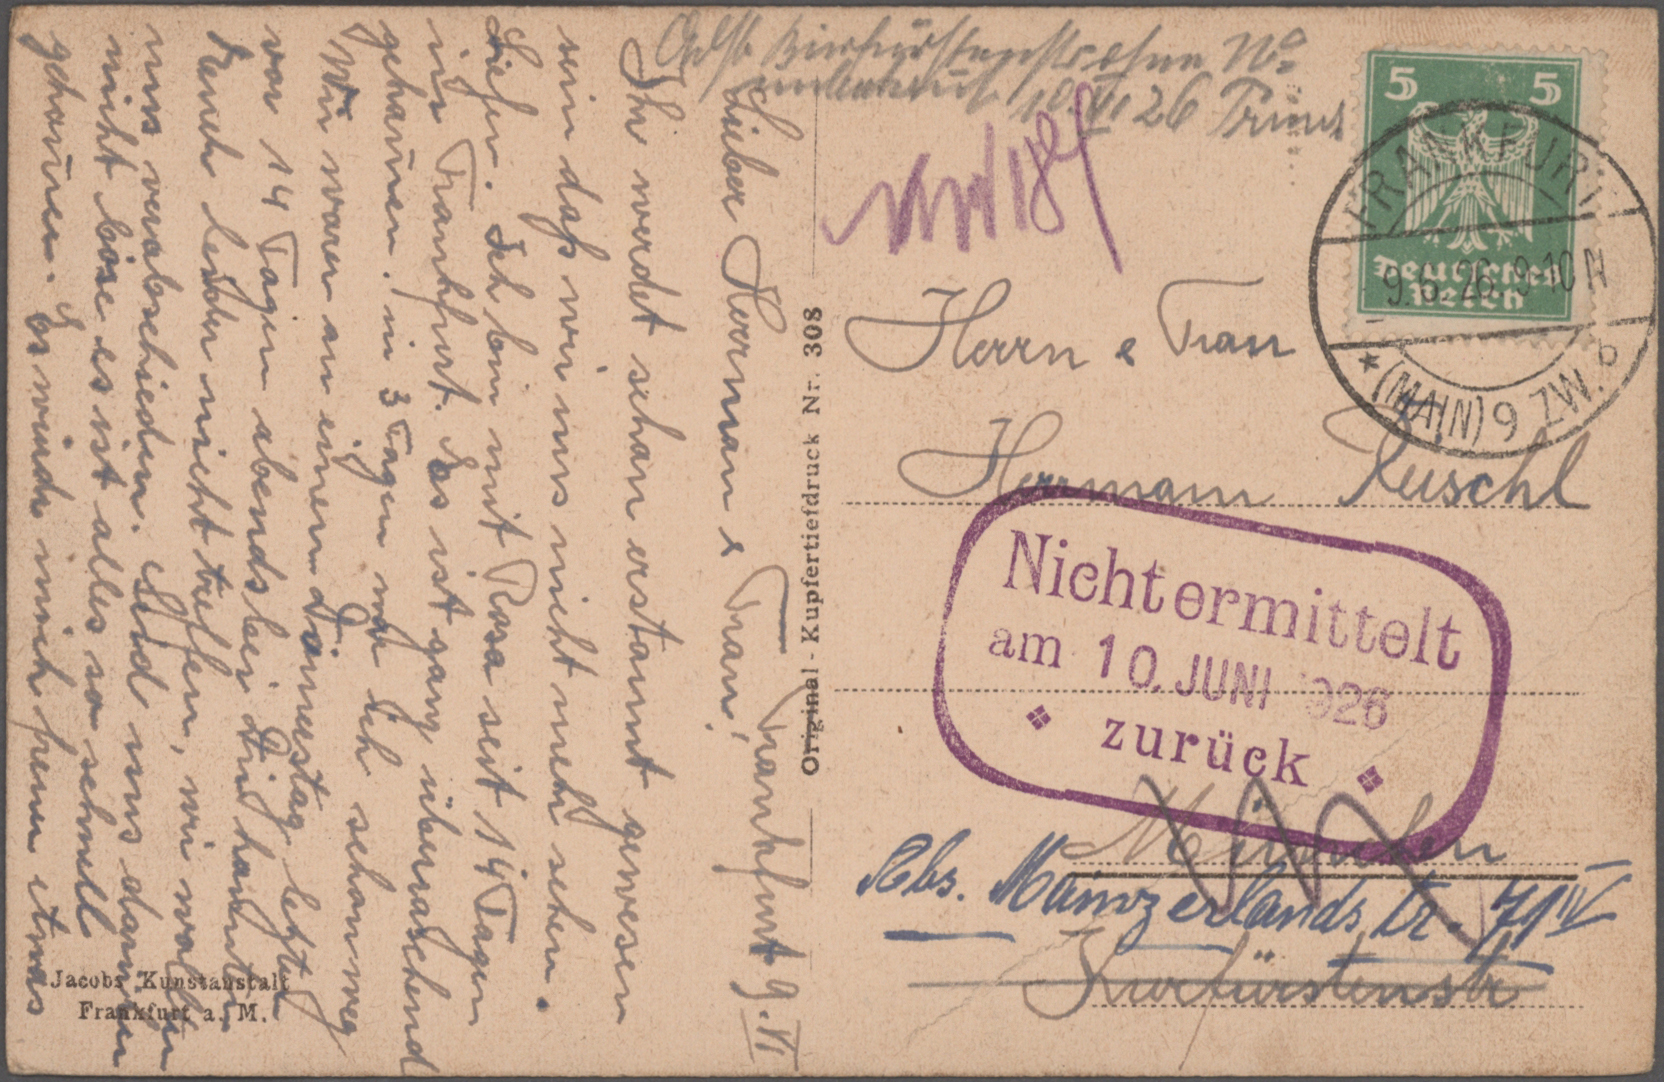 Frankfurt 9.VI
Lieber Herrman & Frau!
Ihr werdet schon erstaunt gewesen
sein daß wir uns nicht mehr sehen
ließen. Ich bin mit Rosa seit 14 Tagen
in Frankfurt. Es ist ganz überraschend
gekommen. in 3 Tagen war ich schon weg
Wir waren an einem Donnerstag
vor 14 Tagen abends bei
Euch leider nicht treffen, wir wollten
uns verabschieden. Seid uns darum
nicht böse es ist alles so schnell
gekommen. Es würde mich freuen etwas
Jacobs Kunstanstalt
Frankfurt a. M.
Original - Kupfertiefdruck Nr. 308
Kurfürstenstr ohne No
unbekannt 10 VI 26
5 5
Deutsches
Reich
FRANKFURT
9.6.26.9-10 N
* (MAIN) 9 ZW. b
Herrn & Frau
Herrmann Reuschl
Nichtermittelt
am 10. JUNI 1926
zurück
München
Abs. Mainzerlandstr. 71 IV
Kurfürstenstr